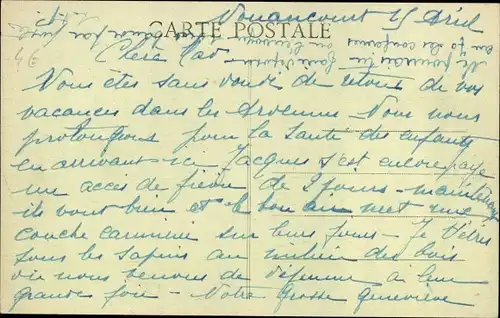 Nonancourt 15 Avril
CARTE POSTALE
Vous êtes sans doute de retour de vos
vacances dans les Ardennes Nous nous
prolongeons pour la santé des enfants
en arrivant ici Jacques s'est encore payé
un accès de fièvre de 2 jours - maintenant
ils vont bien et le bon air met une
couche carminée sur leurs joues - Je
sous les sapins au milieu des bois
où nous venons de déjeuner à leur
grande joie - Notre grosse Geneviève